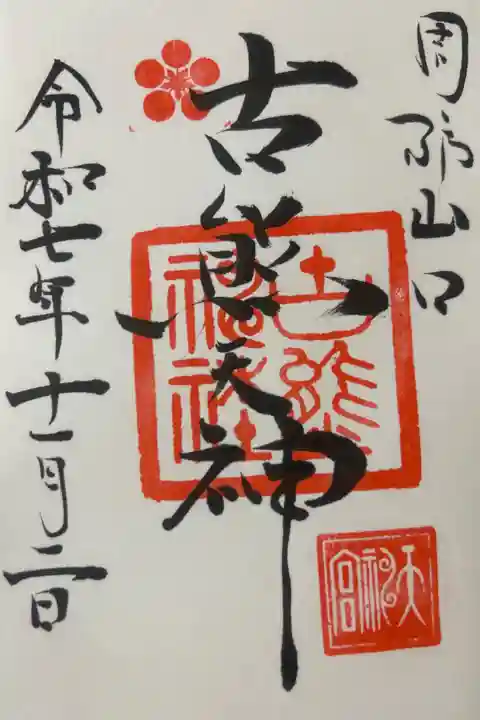 周防山口
古熊天神
令和七年十一月二日
古熊神社
天神宮